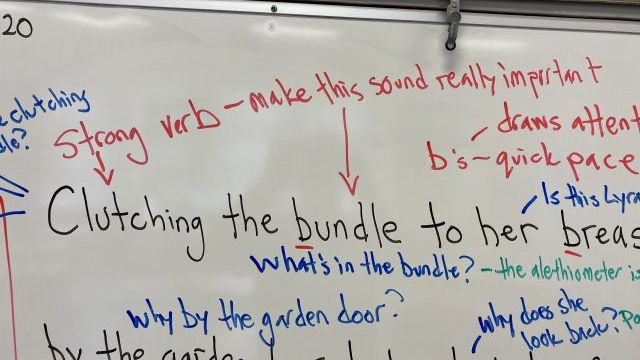 20
clutching
Strong verb - make this sound really important
draws attent
b's - quick pace
Is this Lyra
Clutching the bundle to her breas
what's in the bundle? - the alethiometer is
why by the garden door?
why does she
look back?
by the